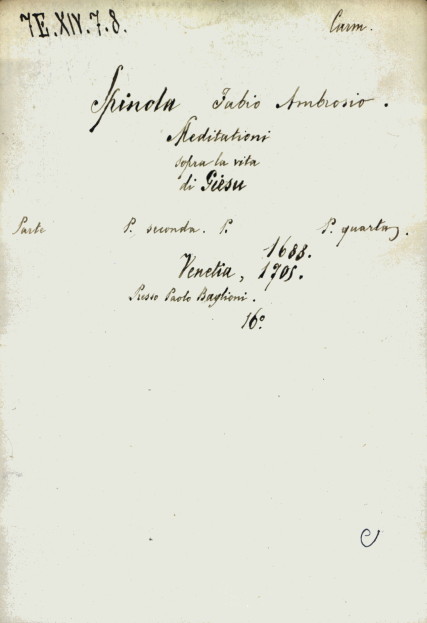 7E.XIV.7.8. Carm.
Spinola Fabio Ambrosio.
Meditationi
sopra la vita
di Giesu
Parte P. seconda. P. P. quarta.
1688.
Venetia, 1705.
Presso Paolo Baglioni.
16º